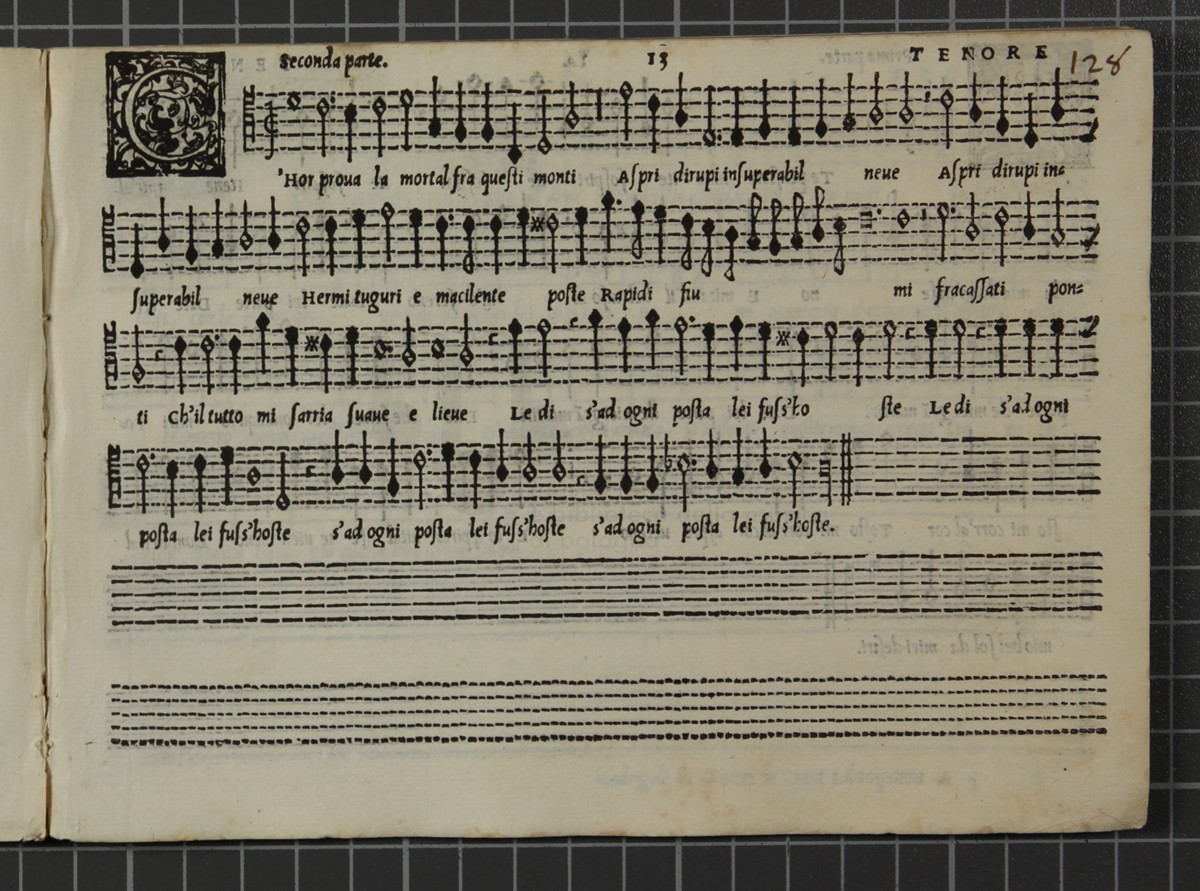 Seconda parte. 13 TENORE 128
C'Hor proua la mortal fra queſti monti Aſpri dirupi inſuperabil neue Aſpri dirupi in=
ſuperabil neue Hermi tuguri e macilente poſte Rapidi fiu mi fracaſſati pon=
ti Ch'il tutto mi ſarria ſuaue e lieue Le di s'ad ogni poſta lei fuſs'ho ſte Le di s'ad ogni
poſta lei fuſs'hoſte s'ad ogni poſta lei fuſs'hoſte s'ad ogni poſta lei fuſs'hoſte.